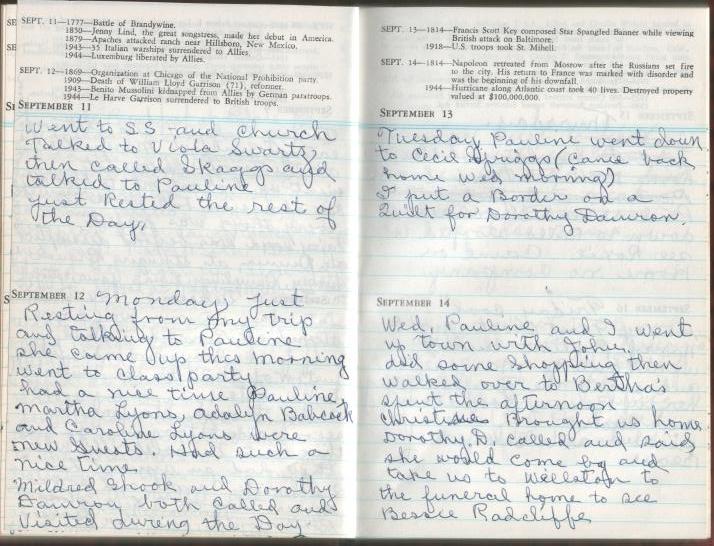 SE
SEPT. 11—1777—Battle of Brandywine.
1850—Jenny Lind, the great songstress, made her debut in America.
1879—Apaches attacked ranch near Hillsboro, New Mexico.
SE
1943—35 Italian warships surrendered to Allies.
1944—Luxemburg liberated by Allies.
SEPT. 12—1869—Organization at Chicago of the National Prohibition party.
1909—Death of William Lloyd Garrison (71), reformer.
1943—Benito Mussolini kidnapped from Allies by German paratroops.
1944—Le Havre Garrison surrendered to British troops.
SI
SEPTEMBER 11
Went to S.S. and church
Talked to Viola Swartz,
then called Skaggs and
talked to Pauline
just Rested the rest of
the Day,
S
SEPTEMBER 12
Monday, just
Resting from my trip
and talking to Pauline
she came up this morning
went to class party
had a nice time Pauline,
Martha Lyons, Adalyn Babcock
and Caroline Lyons were
new Guests. Had such a
nice time
Mildred Shook and Dorothy
Damron both called and
Visited during the Day.
SEPT. 13—1814—Francis Scott Key composed Star Spangled Banner while viewing
British attack on Baltimore.
1918—U.S. troops took St. Mihell.
SEPT. 14—1814—Napoleon retreated from Moscow after the Russians set fire
to the city. His return to France was marked with disorder and
was the beginning of his downfall.
1944—Hurricane along Atlantic coast took 40 lives. Destroyed property
valued at $100,000,000.
SEPTEMBER 13
Tuesday, Pauline went down
to Cecil Spriggs (came back
home Wed morning)
I put a Border on a
Quilt for Dorothy Damron.
SEPTEMBER 14
Wed, Pauline and I went
up town with John.
did some Shopping then
walked over to Bertha's
spent the afternoon
Brought us home
Dorothy D. called and said
she would come by and
take us to Wellston to
the funeral home to see
Bessie Radcliffe